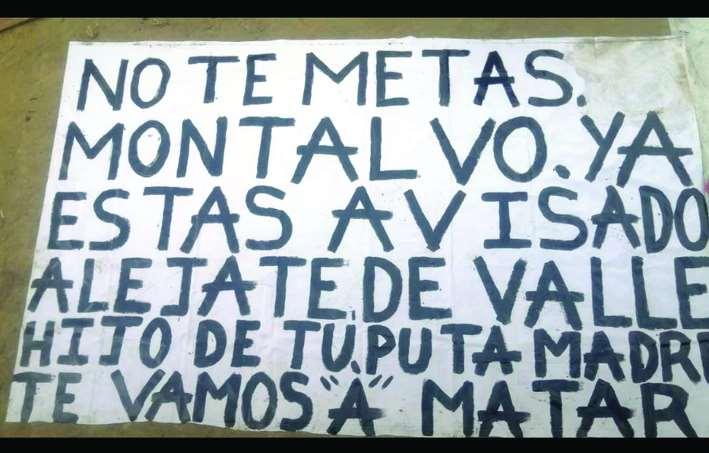 NO TE METAS.
MONTALVO. YA
ESTAS AVISADO
ALEJATE. DE VALLE
HIJO DE TU. PUTA MADRE
TE VAMOS "A" MATAR